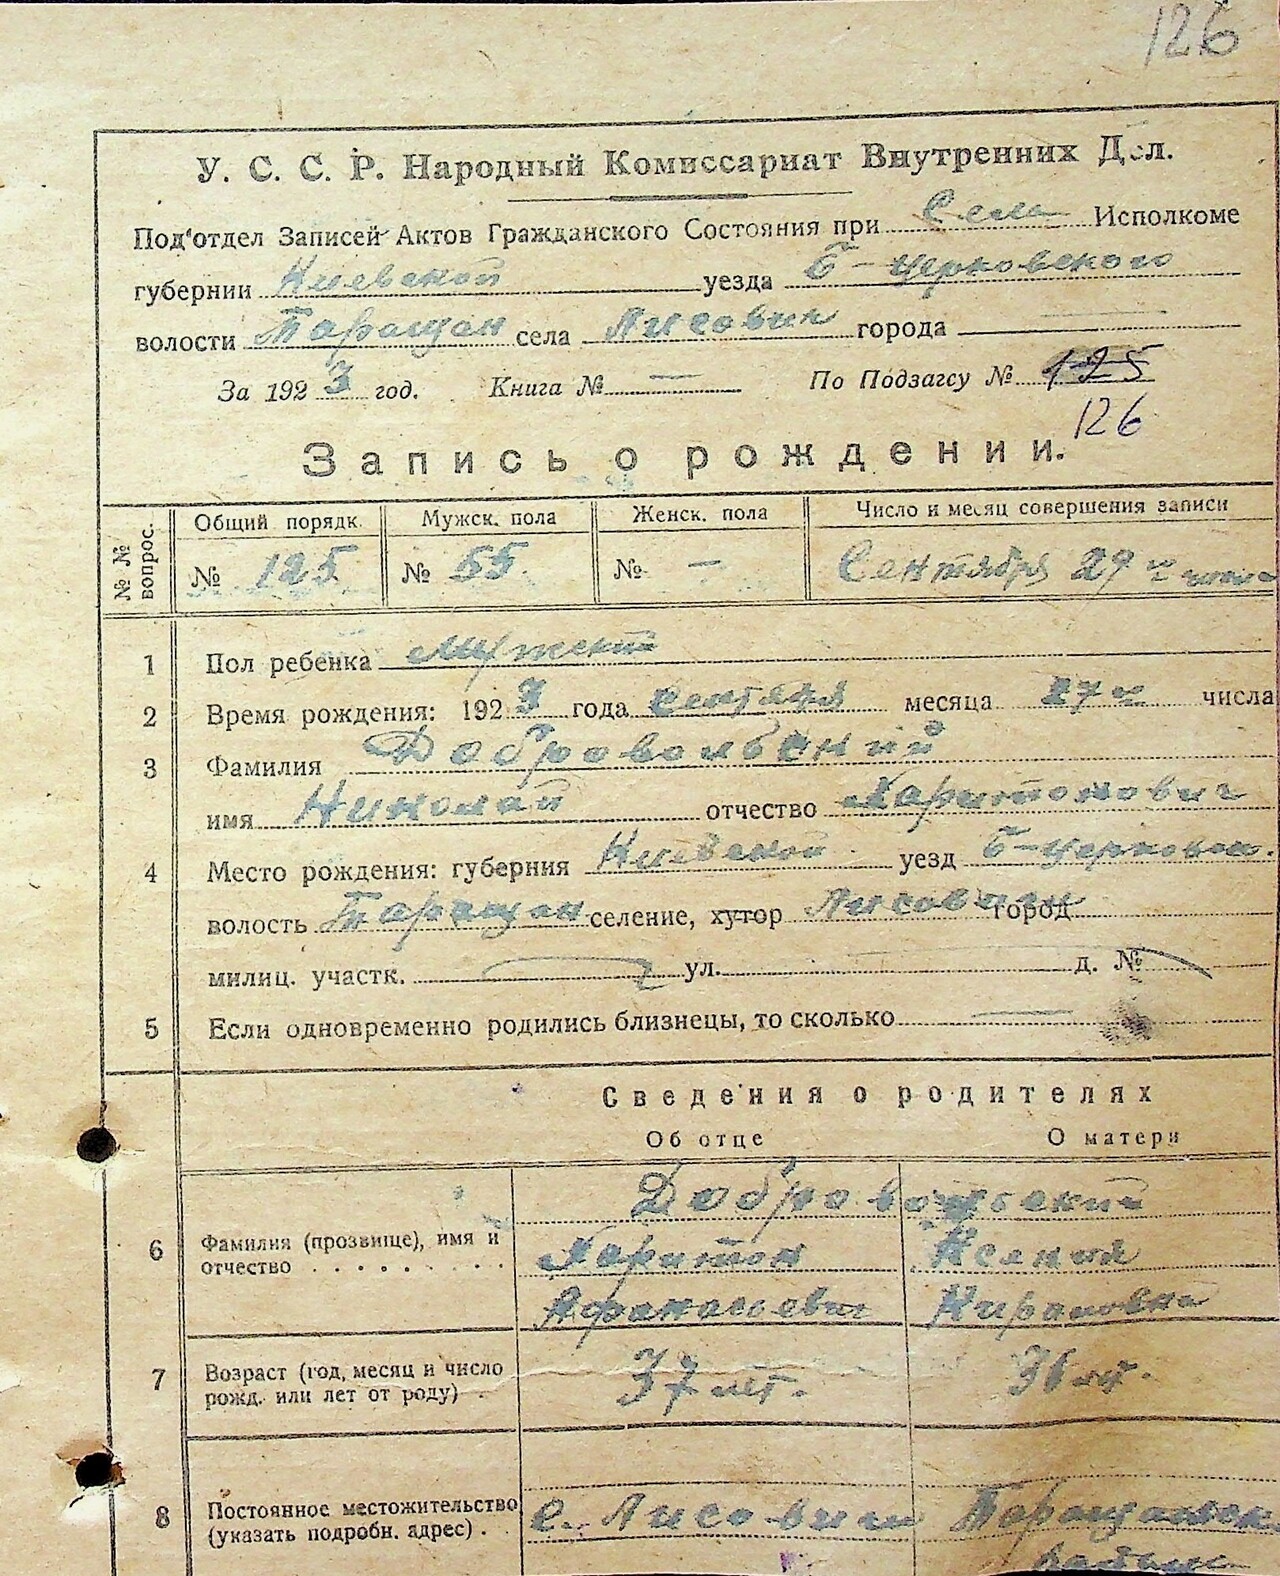 126
У. С. С. Р. Народный Комиссариат Внутренних Дел.
Под'отдел Записей Актов Гражданского Состояния при Сель Исполкоме
губернии Киевской уезда Б-Церковского
волости Таращан села Лисович города —
За 1923 год. Книга № — По Подзагсу № 125
126
Запись о рождении.
№ № вопрос. Общий порядк. Мужск. пола Женск. пола Число и месяц совершения записи
№ 125 № 55 № — Сентября 29
1 Пол ребенка Мужской
2 Время рождения: 1923 года Сентября месяца 27го числа
3 Фамилия Добровольский
имя Николай отчество Харитонович
4 Место рождения: губерния Киевской уезд Б-Церковск.
волость Таращан селение, хутор Лисович город
милиц. участк. ул. д. №
5 Если одновременно родились близнецы, то сколько —
Сведения о родителях
Об отце О матери
Добровольский
6 Фамилия (прозвище), имя и отчество . . . . . . . . . Харитон Ксения
Афанасьевич
7 Возраст (год, месяц и число рожд. или лет от роду) . 37 лет. 36 лет.
8 Постоянное местожительство (указать подробн. адрес) . с. Лисовичи Таращанск